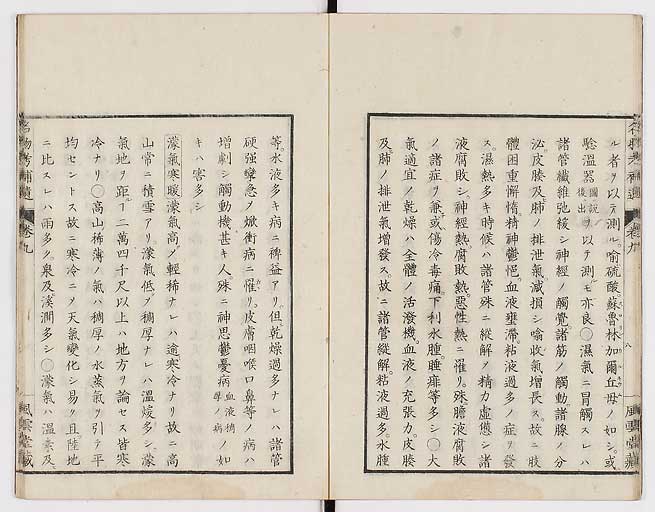 ル者ヲ以テ測ル。喩硫酸。蘇魯林加爾丘母ノ如シ。或
驗溫器圖説後出ヲ以テ測ルモ亦良○濕氣ニ冒觸スレハ
諸管纖維弛緩シ神經ノ觸覺諸筋ノ觸動諸腺ノ分
泌皮腠及肺ノ排泄氣減損シ噏收氣增長ス。故ニ肢
體困重懈惰。精神鬱悒。血液壅滯。粘液過多ノ症ヲ發
ス。濕熱多キ時候ハ諸管殊ニ縱解ノ精力虛憊シ諸
液腐敗シ。神經熱腐敗熱。惡性熱ニ罹リ。殊膽液腐敗
ノ諸症ヲ兼。或傷冷毒痛。下利水腫腄痱等多シ○大
氣適宜ノ乾燥ハ全體ノ活潑機。血液ノ充張力。皮腠
及肺ノ排泄氣增發ス。故ニ諸管縱解。粘液過多。水腫
等。水液多キ病ニ裨益アリ。但乾燥過多ナレハ諸管
硬強攣急ノ焮衝病ニ罹リ。皮膚咽喉口鼻等ノ病ハ
增劇シ觸動機甚キ人。殊ニ神思鬱憂病血液稠厚ノ病ノ如
キハ害多シ
濛氣寒暖濛氣高ク輕稀ナレハ逾寒冷ナリ故ニ高
山常ニ積雪アリ濛氣低ク稠厚ナレハ溫煖多シ濛
氣地ヲ距ルヿ二萬四千尺以上ハ地方ヲ論セス皆寒
冷ナリ○高山稀薄ノ氣ハ稠厚ノ水蒸氣ヲ引テ平
均セントス故ニ寒冷ニノ天氣變化シ易ク且陸地
ニ比スレハ雨多ク泉及溪澗多シ○濛氣ハ溫素及
名物考補遺 卷九
風雲堂藏
卷九 八
風雲堂藏